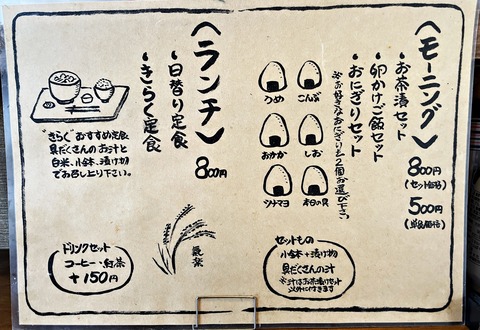 〈モーニング〉
・お茶漬セット
・卵かけご飯セット
・おにぎりセット
※お好きなおにぎりを2個お選び下さい
800円
(セット価格)
500円
(単品価格)
こんぶ
うめ
しお
おかか
本日の具
ツナマヨ
セットもの
小鉢+漬け物
具だくさんの汁
※汁はお茶漬けセット
以外に付きます
〈ランチ〉
・日替り定食
・きらく定食
800円
"きらく"おすすめ定食
具だくさんのお汁と
白米、小鉢、漬け物
でお召し上り下さい。
ドリンクセット
コーヒー、紅茶
+150円